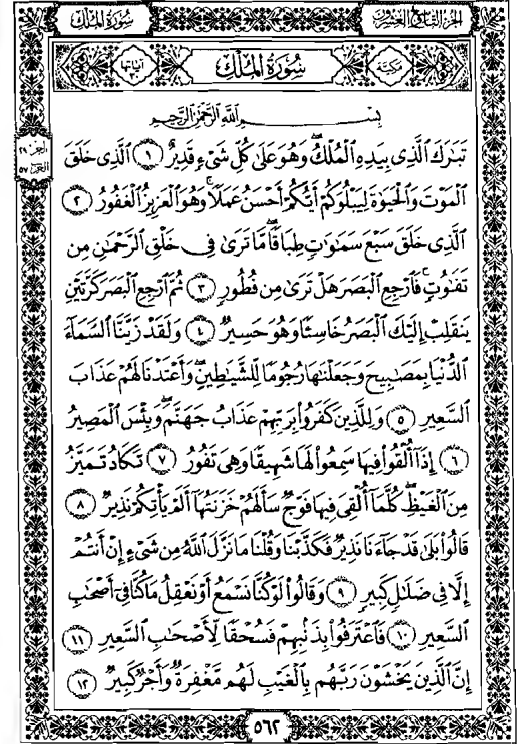 الجزء التاسع والعشرون
سُورَةُ المُلْكِ
مكية
سُورَةُ المُلْكِ
آياتها ٣٠
بِسْمِ اللَّهِ الرَّحْمَٰنِ الرَّحِيمِ
تَبَٰرَكَ ٱلَّذِى بِيَدِهِ ٱلْمُلْكُ وَهُوَ عَلَىٰ كُلِّ شَىْءٍ قَدِيرٌ ١ ٱلَّذِى خَلَقَ
ٱلْمَوْتَ وَٱلْحَيَوٰةَ لِيَبْلُوَكُمْ أَيُّكُمْ أَحْسَنُ عَمَلًا ۚ وَهُوَ ٱلْعَزِيزُ ٱلْغَفُورُ ٢
ٱلَّذِى خَلَقَ سَبْعَ سَمَٰوَٰتٍ طِبَاقًا ۖ مَّا تَرَىٰ فِى خَلْقِ ٱلرَّحْمَٰنِ مِن
تَفَٰوُتٍ ۖ فَٱرْجِعِ ٱلْبَصَرَ هَلْ تَرَىٰ مِن فُطُورٍ ٣ ثُمَّ ٱرْجِعِ ٱلْبَصَرَ كَرَّتَيْنِ
يَنقَلِبْ إِلَيْكَ ٱلْبَصَرُ خَاسِئًا وَهُوَ حَسِيرٌ ٤ وَلَقَدْ زَيَّنَّا ٱلسَّمَآءَ
ٱلدُّنْيَا بِمَصَٰبِيحَ وَجَعَلْنَٰهَا رُجُومًا لِّلشَّيَٰطِينِ ۖ وَأَعْتَدْنَا لَهُمْ عَذَابَ
ٱلسَّعِيرِ ٥ وَلِلَّذِينَ كَفَرُوا۟ بِرَبِّهِمْ عَذَابُ جَهَنَّمَ ۖ وَبِئْسَ ٱلْمَصِيرُ
٦ إِذَآ أُلْقُوا۟ فِيهَا سَمِعُوا۟ لَهَا شَهِيقًا وَهِىَ تَفُورُ ٧ تَكَادُ تَمَيَّزُ
مِنَ ٱلْغَيْظِ ۖ كُلَّمَآ أُلْقِىَ فِيهَا فَوْجٌ سَأَلَهُمْ خَزَنَتُهَآ أَلَمْ يَأْتِكُمْ نَذِيرٌ ٨
قَالُوا۟ بَلَىٰ قَدْ جَآءَنَا نَذِيرٌ فَكَذَّبْنَا وَقُلْنَا مَا نَزَّلَ ٱللَّهُ مِن شَىْءٍ إِنْ أَنتُمْ
إِلَّا فِى ضَلَٰلٍ كَبِيرٍ ٩ وَقَالُوا۟ لَوْ كُنَّا نَسْمَعُ أَوْ نَعْقِلُ مَا كُنَّا فِىٓ أَصْحَٰبِ
ٱلسَّعِيرِ ١٠ فَٱعْتَرَفُوا۟ بِذَنۢبِهِمْ فَسُحْقًا لِّأَصْحَٰبِ ٱلسَّعِيرِ ١١
إِنَّ ٱلَّذِينَ يَخْشَوْنَ رَبَّهُم بِٱلْغَيْبِ لَهُم مَّغْفِرَةٌ وَأَجْرٌ كَبِيرٌ ١٢
الجزء ٢٩
الحزب ٥٧
٥٦٢